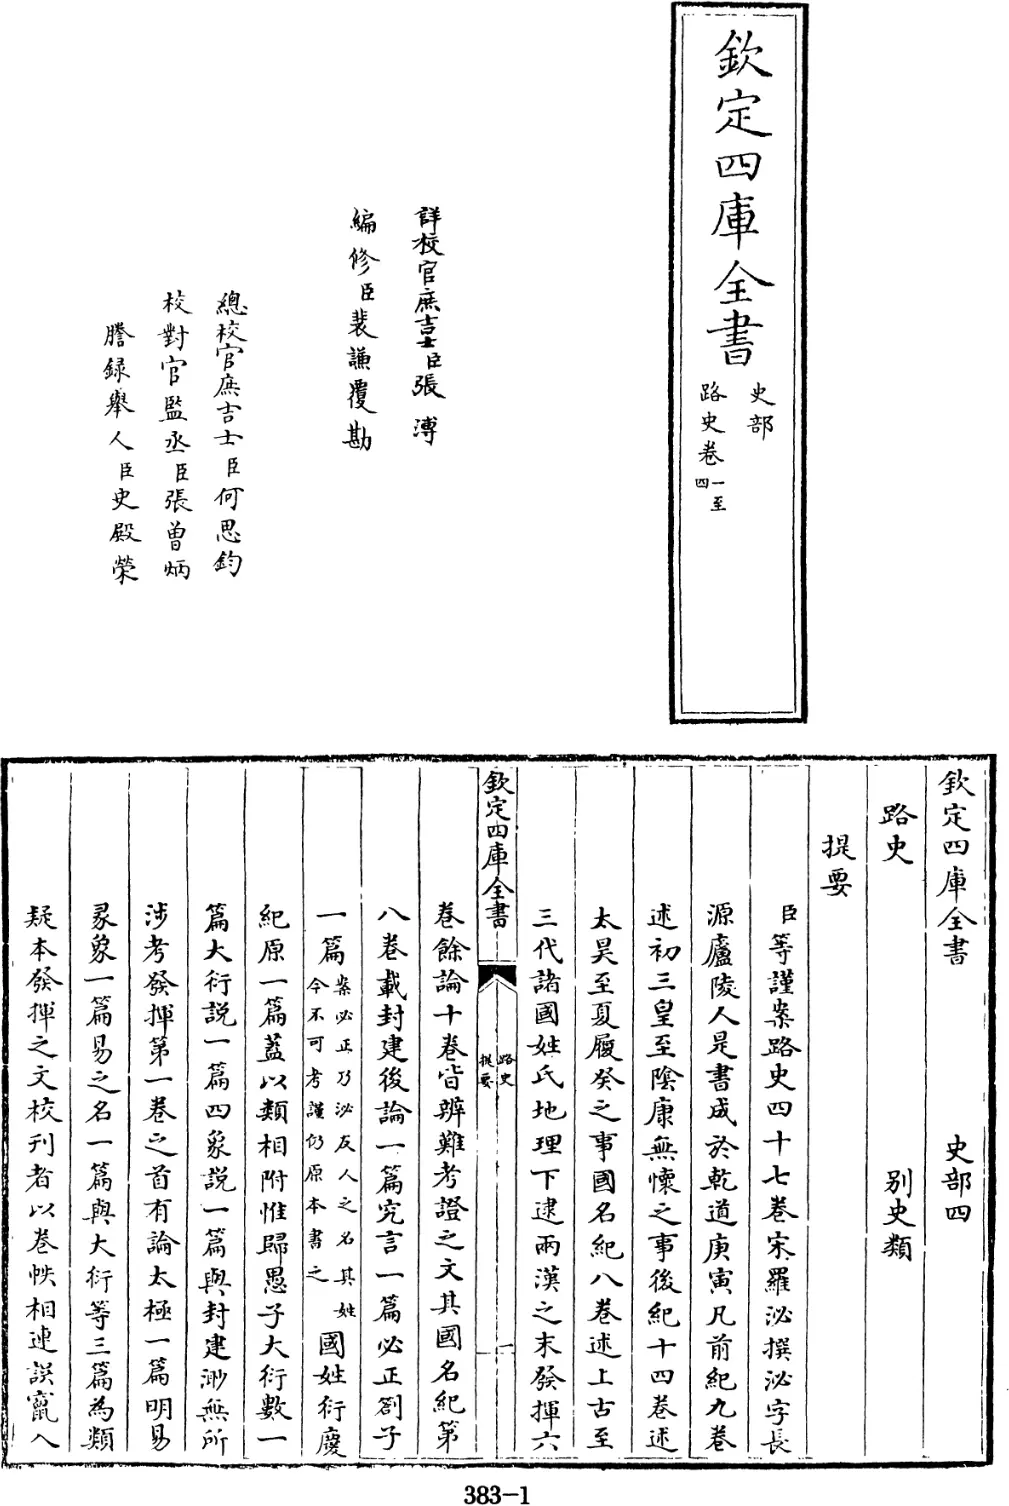 欽定四庫全書
史部
路史卷一至四
詳校官庶吉士臣張溥
編修臣裴謙覆勘
總校官庶吉士臣何思鈞
校對官監丞臣張曾炳
謄録舉人臣史殿榮
欽定四庫全書 史部四
路史 別史類
提要
臣等謹案路史四十七卷宋羅泌撰泌字長
源廬陵人是書成於乾道庚寅凡前紀九卷
述初三皇至陰康無懷之事後紀十四卷述
太昊至夏履癸之事國名紀八卷述上古至
三代諸國姓氏地理下逮兩漢之末發揮六
欽定四庫全書 路史提要 一
卷餘論十卷皆辨難考證之文其國名紀第
八卷載封建後論一篇究言一篇必正劄子
一篇案必正乃泌友人之名其姓今不可考謹仍原本書之國姓衍慶
紀原一篇葢以類相附惟歸愚子大衍數一
篇大衍説一篇四象説一篇與封建渺無所
涉考發揮第一卷之首有論太極一篇明易
彖象一篇易之名一篇與大衍等三篇為類
疑本發揮之文校刊者以卷帙相連誤竄入
383-1